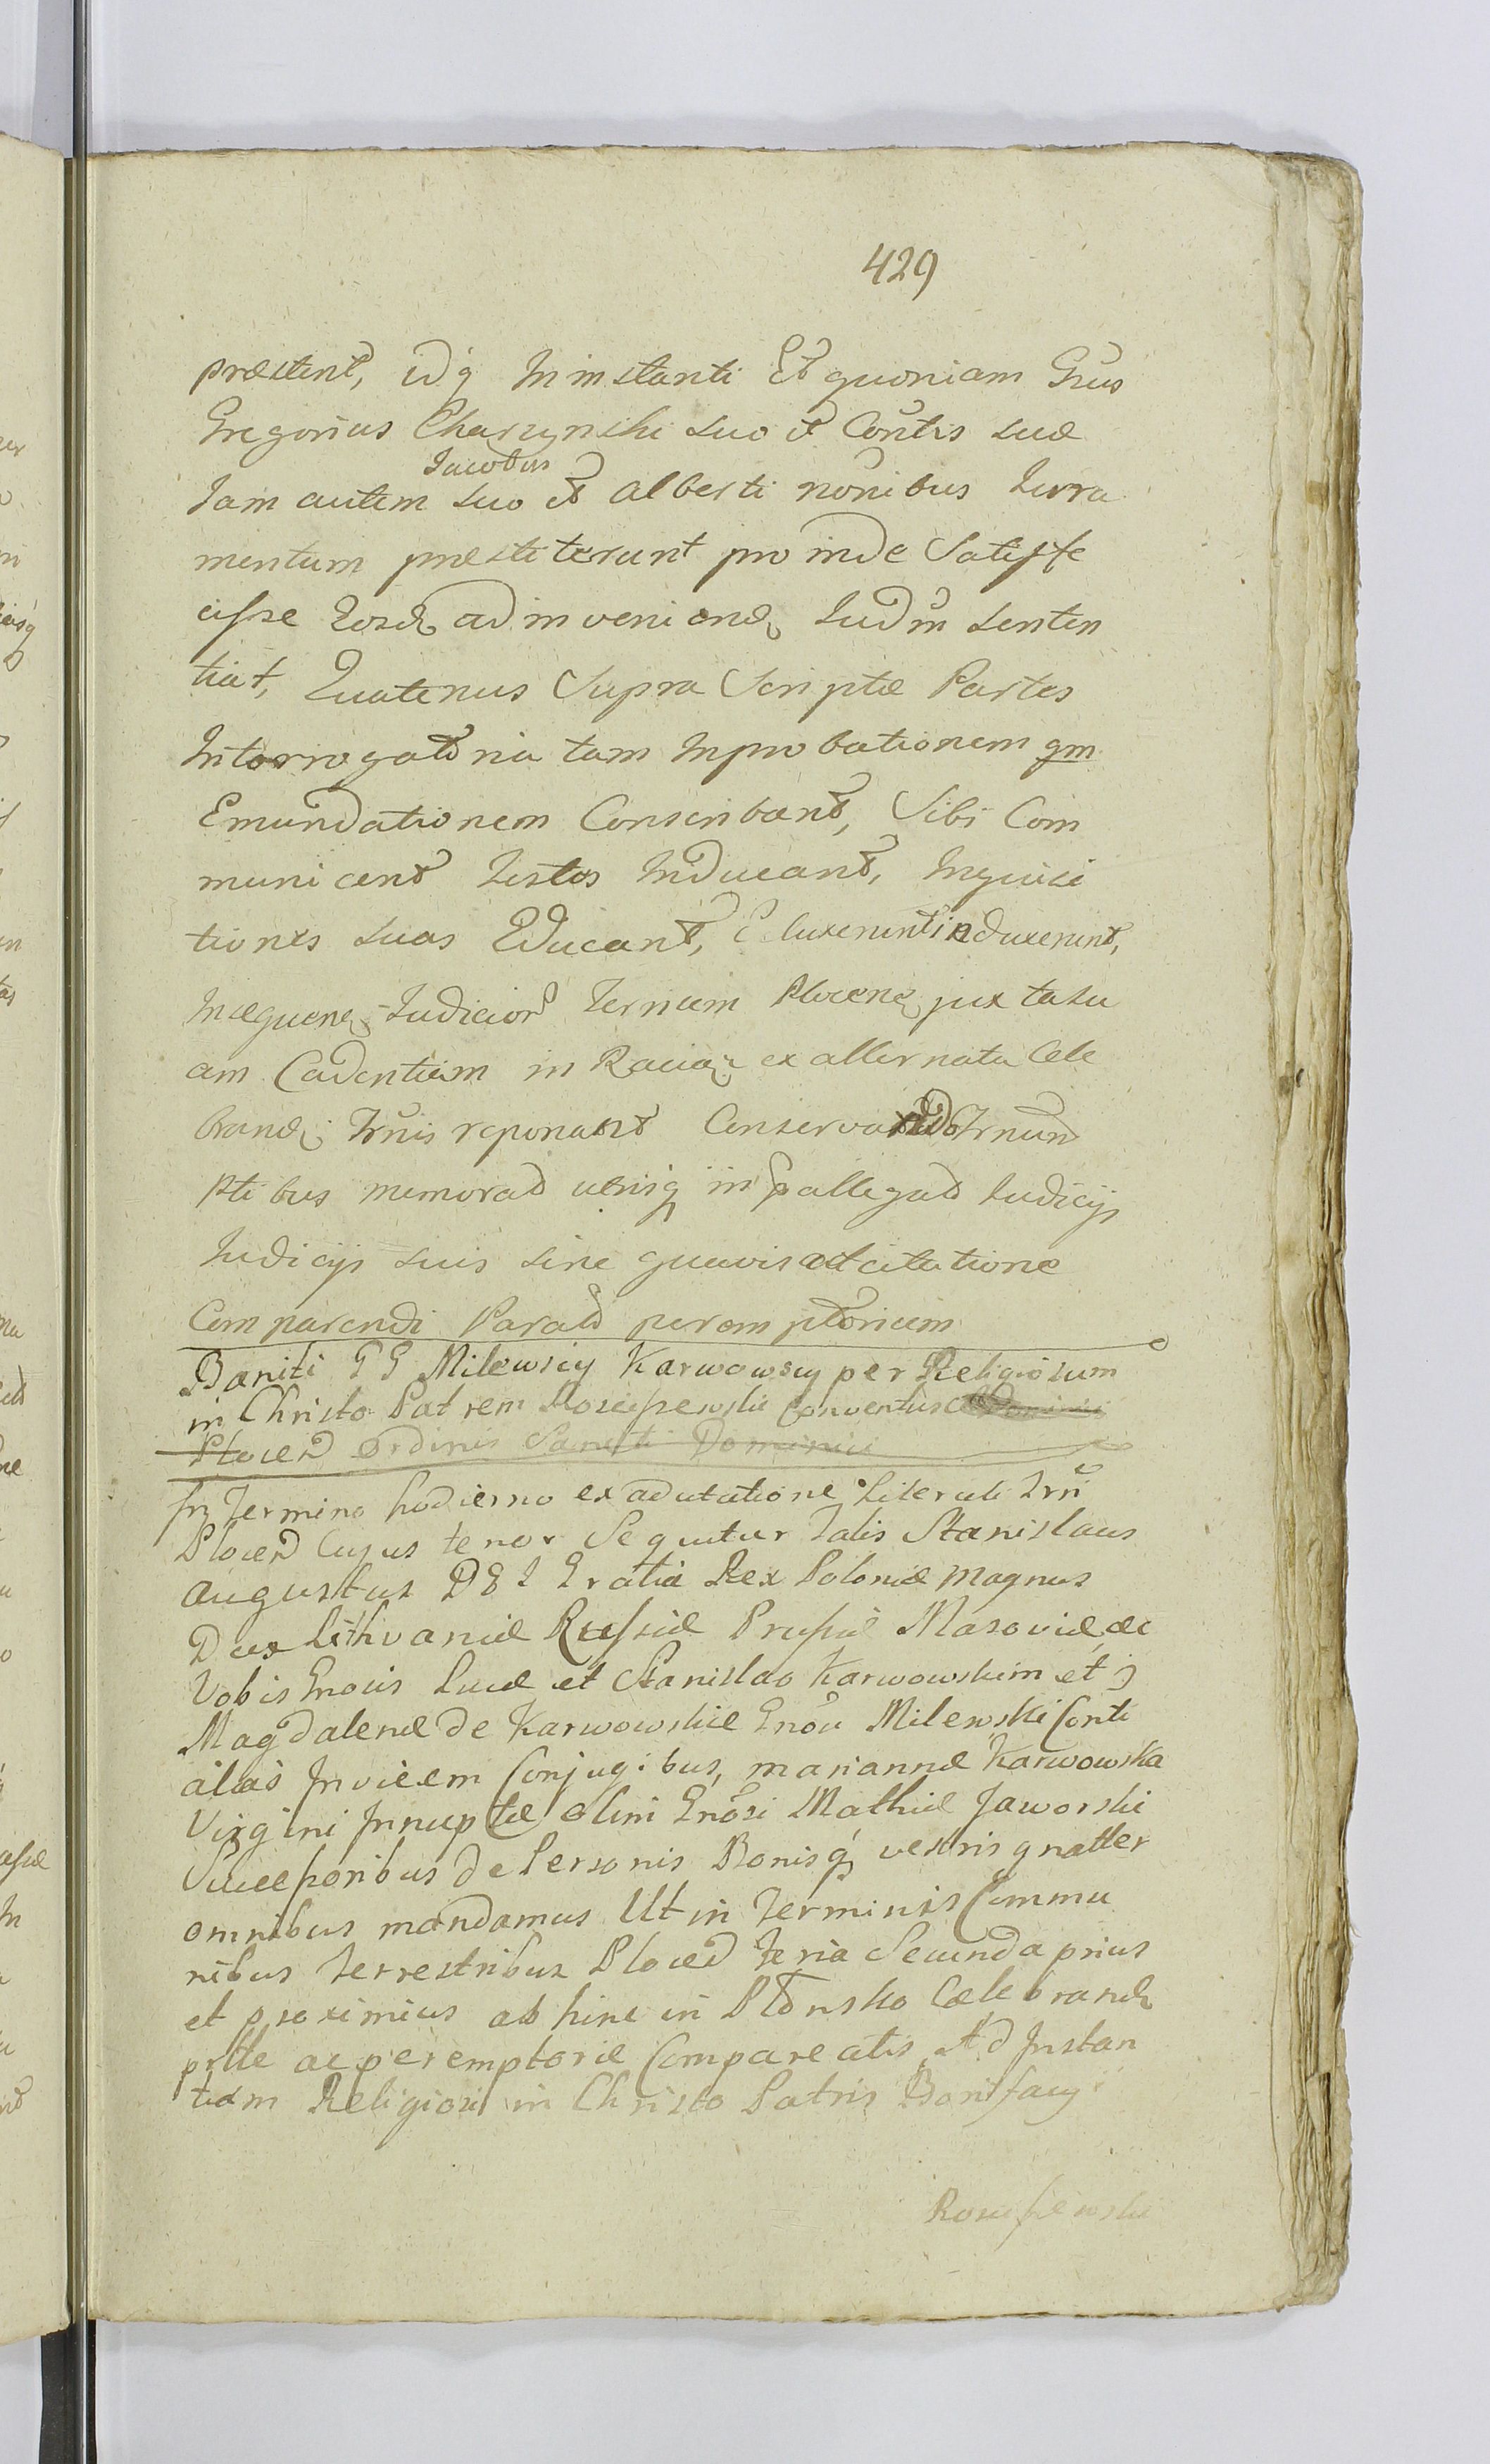 429
præstent, idq In instanti Et quoniam Gnus
Gregorius Charzynski suo et Contis suæ
Jacobus
Jam autem suo et Alberti nonibus Jura
mentum præstiterunt pro inde Satisfe
cisse Eosd adinveniend Judm senten
tiat, Quatenus Supra Scriptæ Partes
Interrogatoria tam Inprobationem qm
Emundationem Conscribant, Sibi Com
municent testes Inducant, Inquisi
tiones suas Educant, induxerint,
Judicior Ternum Plocens juxta su
am Cadentiam in Raciaz ex alternata Cele
brand Trnis reponant Conservando Trnum
Ptibus memorat in pallegat Judicijs
Judicijs suis sine quavis adcitatione
Comparendi Parato peremptorium
Baniti GG Milewscy Karwowscy per Religiosum
in Christo Patrem Rosciszewski Conventus
Plocen Ordinis Sancti Dominici
In Termino hodierno ex adcitatione Literali Trri
Plocen Cujus tenor Sequitur talis Stanislaus
Augustus DEI Gratia Rex Poloniæ Magnus
Dux Lithvaniæ Russiæ Prussiæ Masoviæ &c
Vobis Gnosis Lucæ et Stanislao Karwowskim et
Magdalenæ de Karwowskie Gnosi Milewski Conti
alias Invicem Conjugibus, mariannæ Karwowska
Virgini Innuptæ olim Gnosi Mathiæ Jaworski
Successoribus de Personis Bonisq vestris gnatter
omnibus mandamus Ut in Terminis Commu
nibus Terrestribus Plocen feria Secunda prius
et proximius ab hinc in Płonsko Cælebrand
prtte ac peremptorie Compareatis Ad Instan
tiam Religiosi in Christo Patris Bonifacij
Rosciszewski